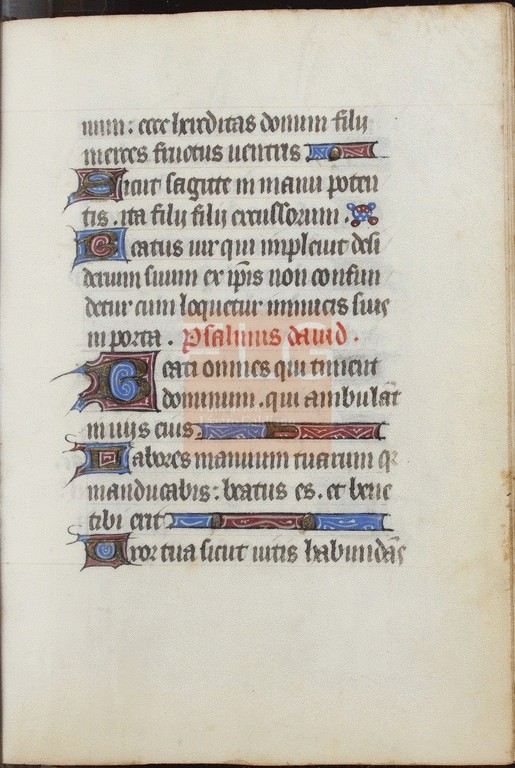 num: ecce hereditas domini filij
merces fructus uentris
Sicut sagitte in manu poten
tis. ita filij filij excussorum.
Beatus uir qui impleuit desi
derium suum ex ip̄is non confun
detur cum loquetur inimicis suis
in porta. Psalmus dauid.
Beati omnes qui timent
dominum. qui ambulāt
in uijs eius.
Labores manuum tuarum q̄
manducabis: beatus es. et bene
tibi erit
Uxor tua sicut uitis habundās